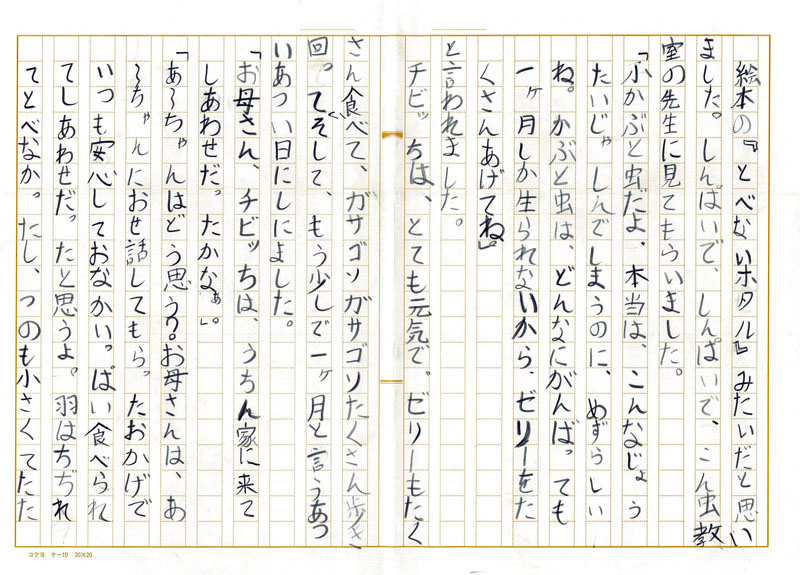 絵本の『とべないホタル』みたいだと思い
ました。しんぱいで、しんぱいで、こん虫教
室の先生に見てもらいました。
「小かぶと虫だよ、本当は、こんなじょう
たいじゃしんでしまうのに、めずらしい
ね。かぶと虫は、どんなにがんばっても
一ヶ月しか生られないから、ゼリーをた
くさんあげてね。」
と言われました。
チビッちは、とても元気で、ゼリーもたく
さん食べて、ガサゴソガサゴソたくさん歩き
回って、そして、もう少しで一ヶ月と言うあつ
いあつい日にしにました。
「お母さん、チビッちは、うちん家に来て
しあわせだったかなぁ。」
「あ〜ちゃんはどう思う？お母さんは、あ
〜ちゃんにおせ話してもらったおかげで
いつも安心しておなかいっぱい食べられ
てしあわせだったと思うよ。羽はちぢれ
てとべなかったし、つのも小さくてたた
コクヨ ケー10 20×20